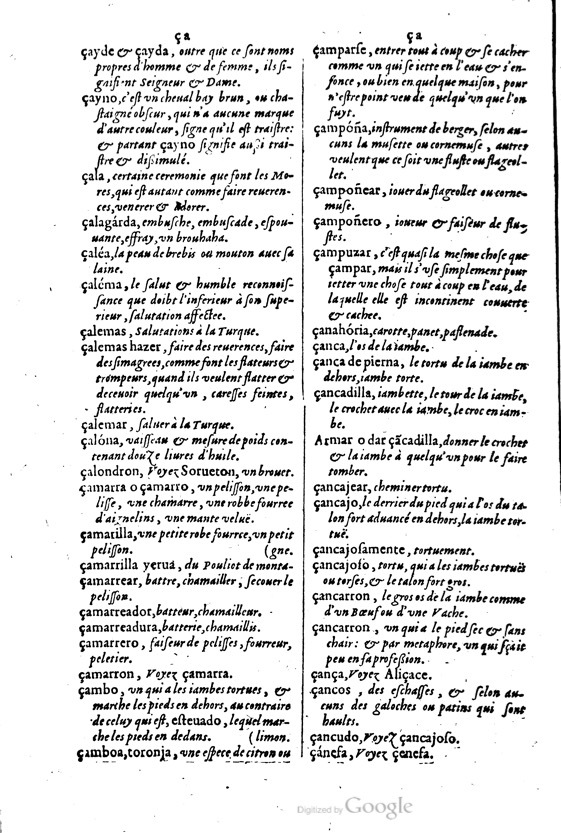 ça
çayde & çayda, outre que ce sont noms
propres d'homme & de femme, ils si-
gnifient Seigneur & Dame.
çayno, c'est vn cheual bay brun, ou cha-
staigne obscur, qui n'a aucune marque
d'autre couleur, signe qu'il est traistre:
& partant çayno signifie aussi trai-
stre & dissimulé.
çala, certaine ceremonie que font les Mo-
res, qui est autant comme faire reueren-
ces, venerer & Adorer.
çalagárda, embusche, embuscade, espou-
uante, effray, vn brouhaha.
çaléa, la peau de brebis ou mouton auec sa
laine.
çaléma, le salut & humble reconnois-
sance que doibt l'inferieur à son supe-
rieur, salutation affectee.
çalemas, Salutations à la Turque.
çalemas hazer, faire des reuerences, faire
des simagrees, comme font les flateurs &
trompeurs, quand ils veulent flatter &
deceuoir quelqu'vn, caresses feintes,
flatteries.
çalemar, saluer à la Turque.
çalóna, vaisseau & mesure de poids con-
tenant douze liures d'huile.
çalondron, Voyez Sorueton, vn brouet.
çamarra o çamarro, vn pelisson, vne pe-
lisse, vne chamarre, vne robbe fourree
d'aignelins, vne mante veluë.
çamarilla, vne petite robe fourree, vn petit
pelisson. (gne.
çamarrilla yerua, du Pouliot de monta-
çamarrear, battre, chamailler, secouer le
pelisson.
çamarreador, batteur, chamailleur.
çamarreadura, batterie, chamaillis.
çamarrero, faiseur de pelisses, fourreur,
peletier.
çamarron, Voyez çamarra.
çambo, vn qui a les iambes tortues, &
marche les pieds en dehors, au contraire
de celuy qui est, esteuado, lequel mar-
che les pieds en dedans. (limon.
çamboa, toronja, vne espece de citron ou
ça
çamparse, entrer tout à coup & se cacher
comme vn qui se iette en l'eau & s'en-
fonce, ou bien en quelque maison, pour
n'estre point veu de quelqu'vn que l'on
fuyt.
çampóña, instrument de berger, selon au-
cuns la musette ou cornemuse, autres
veulent que ce soit vne fluste ou flageol-
let.
çampoñear, iouer du flageollet ou corne-
muse.
çampoñero, ioueur & faiseur de flu-
stes.
çampuzar, c'est quasi la mesme chose que
çampar, mais il s'vse simplement pour
ietter vne chose tout à coup en l'eau, de
laquelle elle est incontinent couuerte
& cachee.
çanahória, carotte, panet, pastenade.
çanca, l'os de la iambe.
çanca de pierna, le tortu de la iambe en
dehors, iambe torte.
çancadilla, iambette, le tour de la iambe,
le crochet auec la iambe, le croc en iam-
be.
Armar o dar çãcadilla, donner le crochet
& la iambe à quelqu'vn pour le faire
tomber.
çancajear, cheminer tortu.
çancajo, le derrier du pied qui a l'os du ta-
lon fort aduancé en dehors, la iambe tor-
tuë.
çancajosamente, tortuement.
çancajoso, tortu, qui a les iambes tortuës
ou torses, & le talon fort gros.
çancarron, le gros os de la iambe comme
d'vn Bœuf ou d'vne Vache.
çancarron, vn qui a le pied sec & sans
chair: & par metaphore, vn qui sçait
peu en sa profession.
çança, Voyez Aliçace.
çancos, des eschasses, & selon au-
cuns des galoches ou patins qui sont
haults.
çancudo, Voyez çancajoso.
çánefa, Voyez çenefa.
Digitized by Google